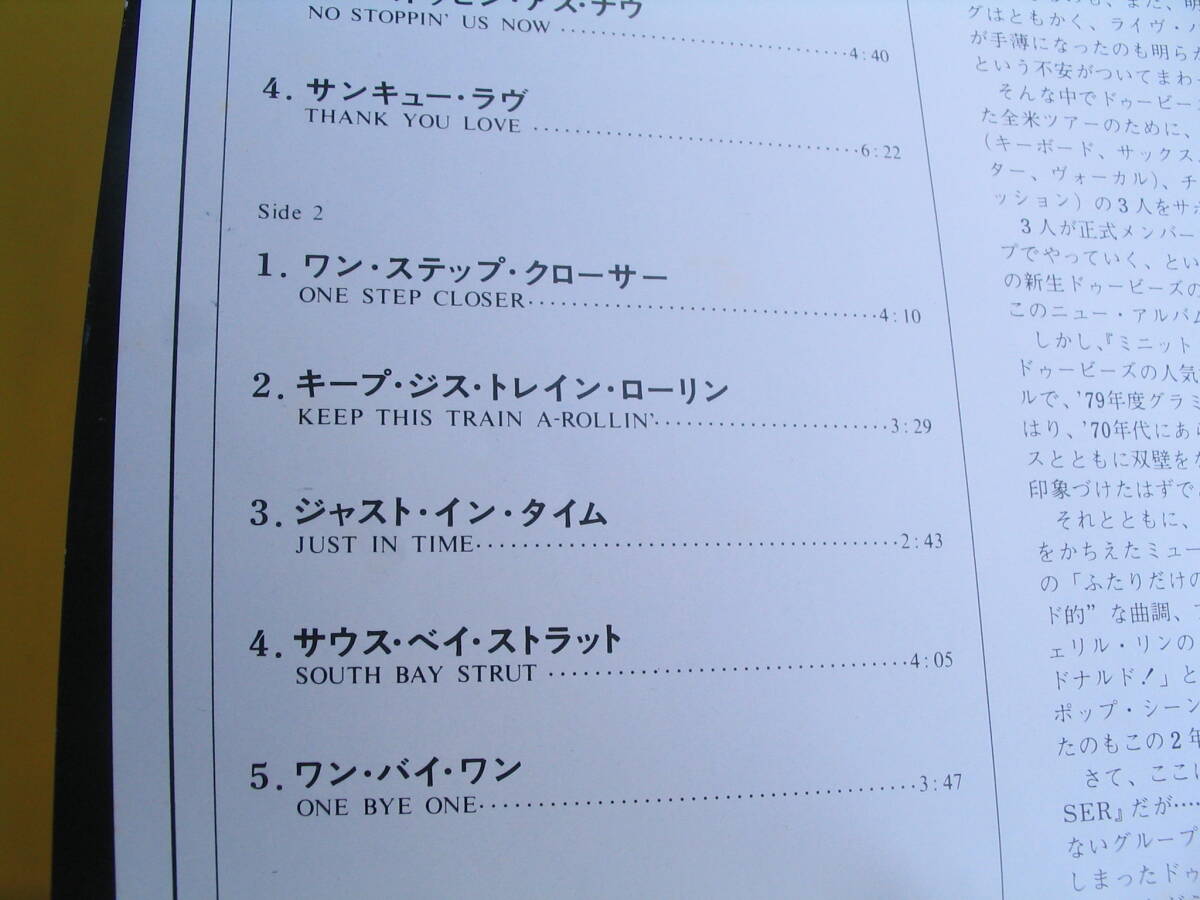 アス・ナウ
NO STOPPIN' US NOW 4:40
4. サンキュー・ラヴ
THANK YOU LOVE 6:22
Side 2
1. ワン・ステップ・クローサー
ONE STEP CLOSER 4:10
2. キープ・ジス・トレイン・ローリン
KEEP THIS TRAIN A-ROLLIN' 3:29
3. ジャスト・イン・タイム
JUST IN TIME 2:43
4. サウス・ベイ・ストラット
SOUTH BAY STRUT 4:05
5. ワン・バイ・ワン
ONE BYE ONE 3:47
グはともかく、ライヴ・
が手薄になったのも明らか
という不安がついてまわ
そんな中でドゥービー
た全米ツアーのために、
(キーボード、サックス、
ター、ヴォーカル)、チ
ッション) の3人をサポ
3人が正式メンバー
プでやっていく、とい
の新生ドゥービーズの
このニュー・アルバム
しかし、『ミニット
ドゥービーズの人気
ルで、'79年度グラミ
はり、'70年代にあ
スとともに双壁をな
印象づけたはずで
それとともに、
をかちえたミュー
の「ふたりだけの
ド的”な曲調、
ェリル・リンの
ドナルド!」と
ポップ・シーン
たのもこの2年
さて、ここに
SER』だが……
ないグループ
しまったドゥ